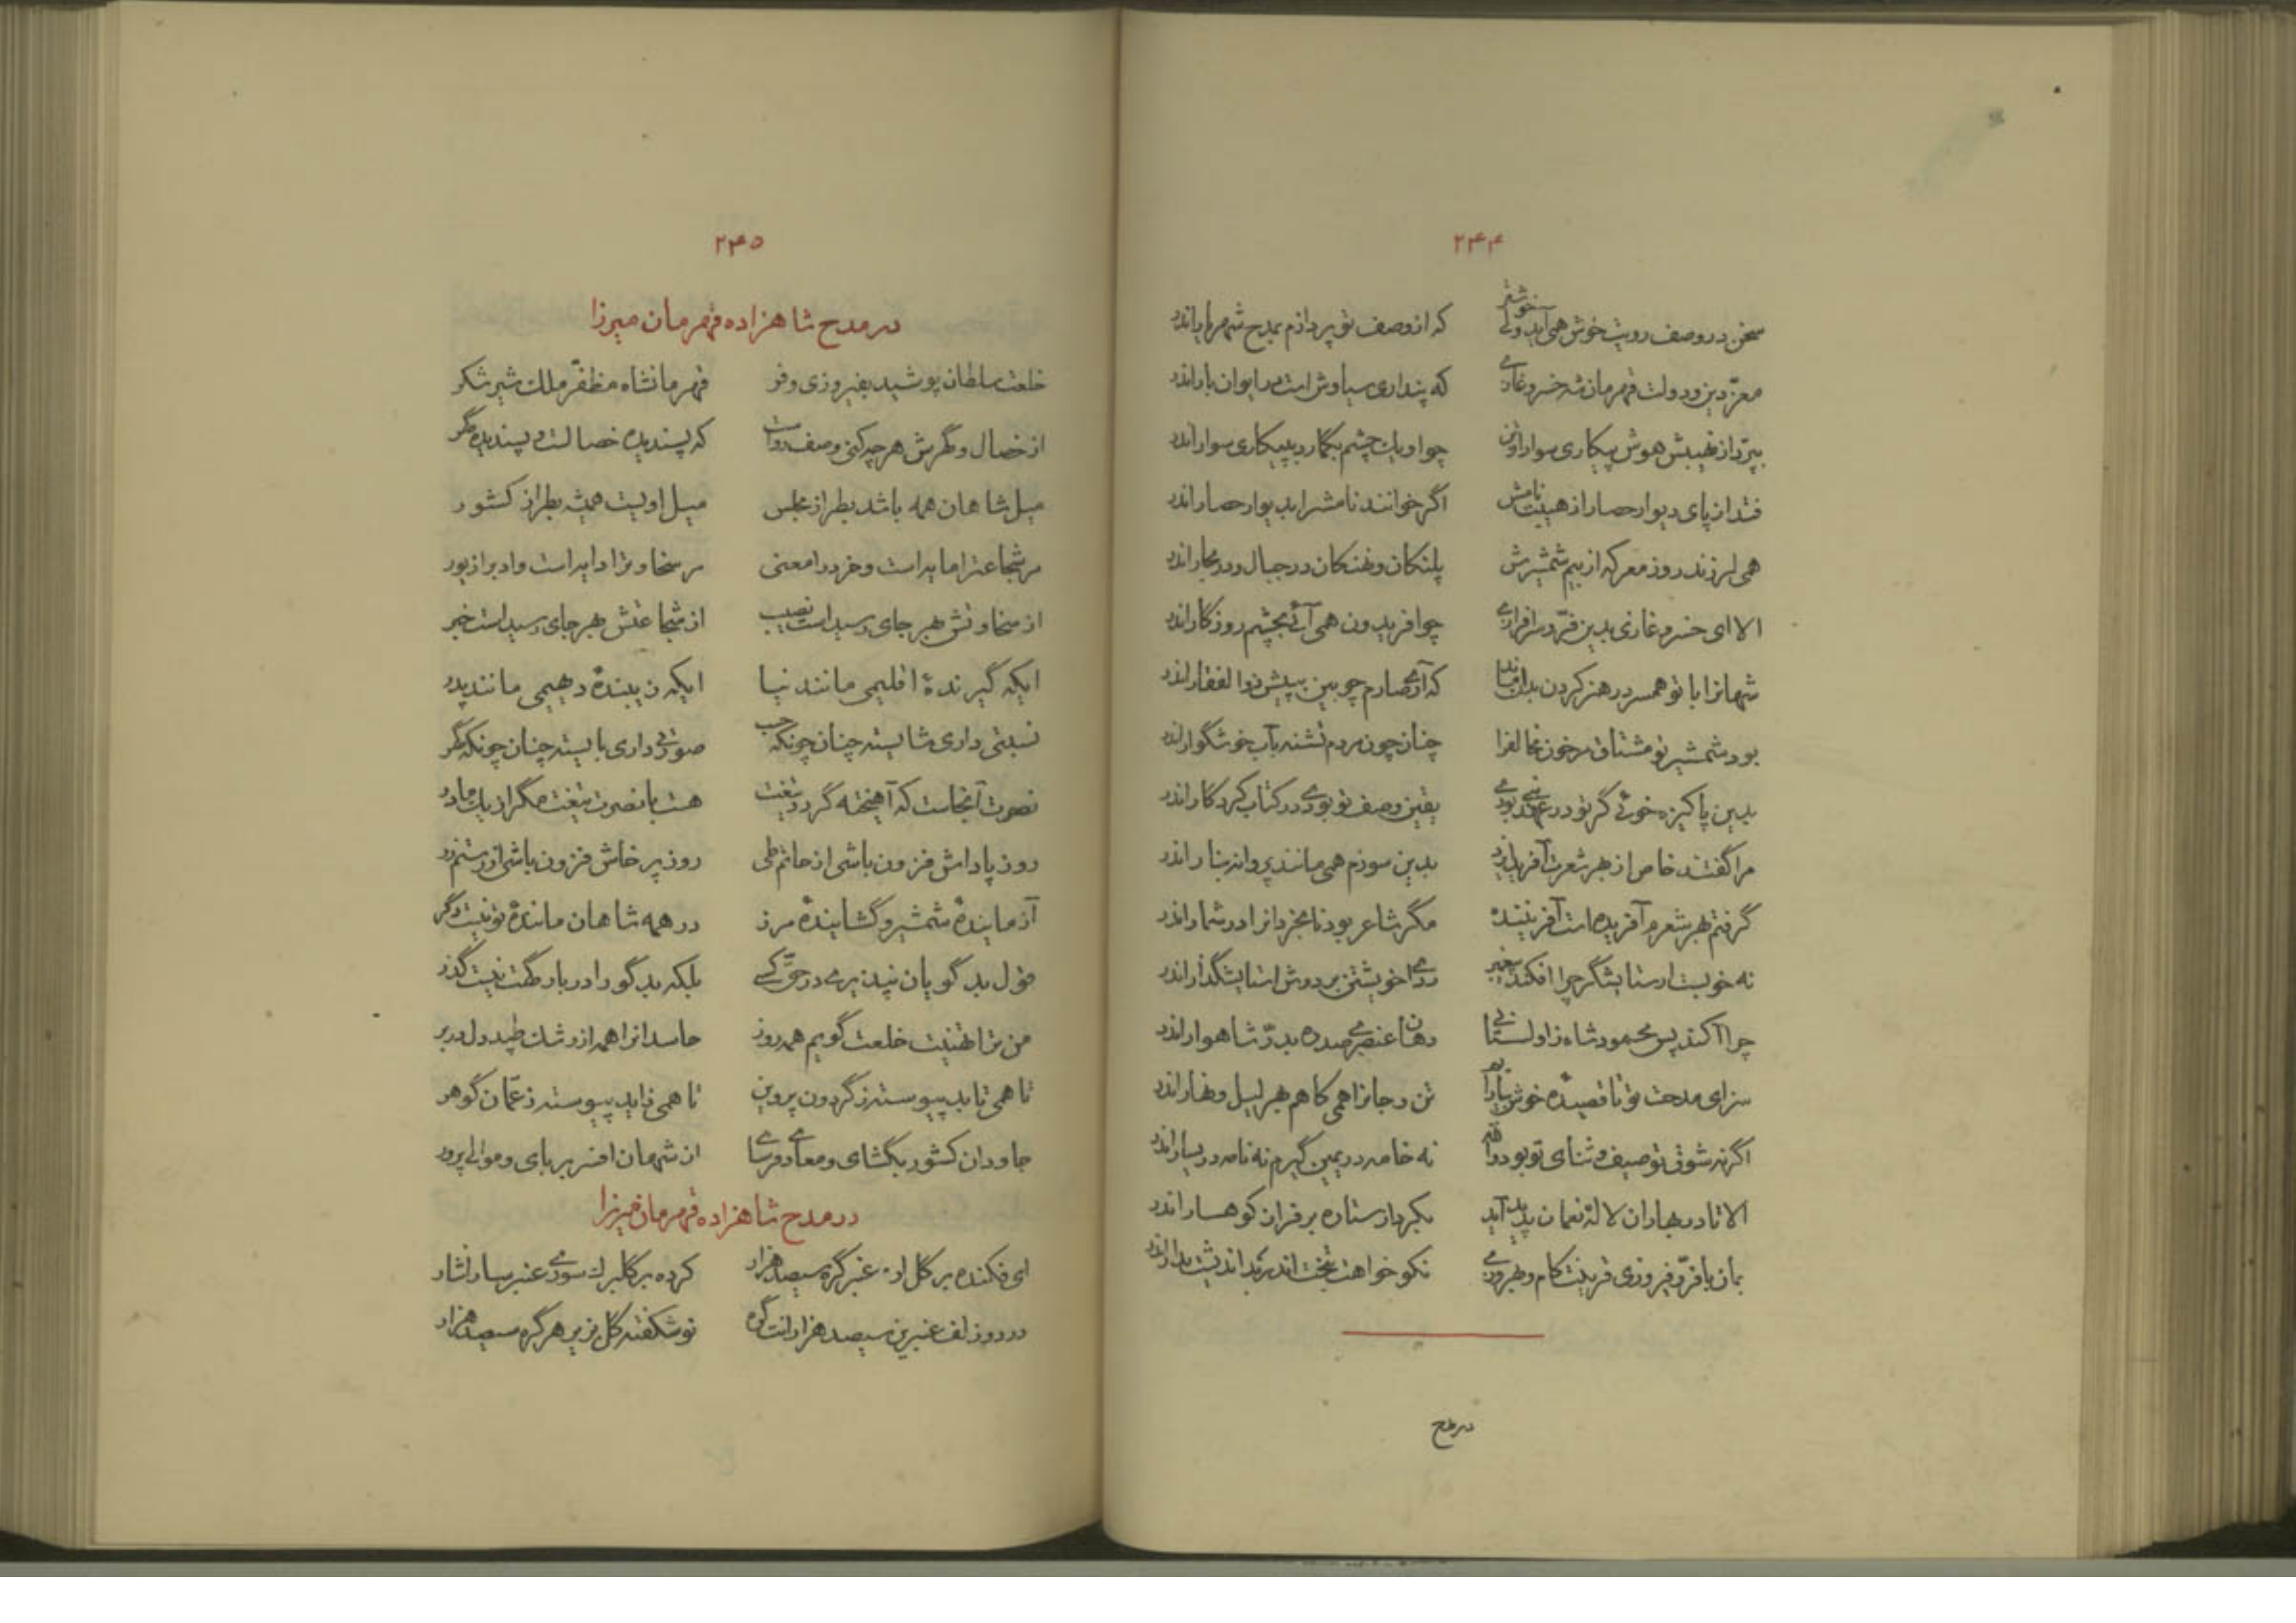 ۲۴۴
سخن در وصف رویت خوش همی آید ولی خوشتر که از وصف تو پردازم بمدح شهریار اندر
معز دین و دولت قهرمان شه خسرو غازی که پنداری سیاوش است در ایوان بار اندر
بپرد از نهیبش هوش پیکاری سوار چو او یک چشم بگمارد بپیکاری سوار اندر
فتد از پای دیوار حصار از هیبت نامش اگر خوانند نامش را بدیوار حصار اندر
همی لرزند روز معرکه از بیم شمشیرش پلنکان و نهنکان در جبال و در بحار اندر
الا ای خسرو غازی بدین فر و سرافرازی چو افریدون همی آئی بچشم روزگار اندر
شهانرا با تو همسر در هنر کردن بدان ماند که آری صارم چوبین بپیش ذوالفقار اندر
بود شمشیر تو مشتاق مر خون مخالف را چنان چون مردم تشنه بآب خوشگوار اندر
بدین پاکیزه خوئی گر تو در عهد نبی بودی یقین وصف تو بودی در کتاب کردگار اندر
مرا گفتند خاص از بهر شعرت آفرید ایزد بدین سوزم همی مانند پروانه بنار اندر
گرفتم بهر شعرم آفریده است آفریننده مگر شاعر بود نابخردانرا در شمار اندر
نه خویست ار ستایشگر چرا افکند پیغمبر ردای خویشتن بر دوش استایشگذار اندر
چرا آکند پس محمود شاه زاولستانی دهان عنصری صد ره بدر شاهوار اندر
سزای مدحت تو تا قصیده خوش تن و جانرا همی کاهم بهر لیل و نهار اندر
اگر نه شوق توصیف و ثنای تو بود نه خامه در یمین گیرم نه نامه در یسار اندر
الا تا در بهاران لاله نعمان پدید آید بکردار ستاره بر فراز کوهسار اندر
بمان با فر و فیروزی قرینت کام و بهروزی نکو خواهت بتخت اندر بد اندیشت بدار اندر
در مدح
۲۴۵
در مدح شاهزاده قهرمان میرزا
خلعت سلطان پوشید بفیروزی و فر قهرمانشاه مظفر ملک شیر شکر
از خصال و گهرش هر چه کنی وصف رواست که پسندیده خصالست و پسندیده گهر
میل شاهان همه باشد بطراز مجلس میل او نیست همیشه بطراز کشور
مر شجاعترا مایه است و خرد را معنی مر سخاوترا دایه است و ادب را زیور
از سخاوتش بهر جای رسیدست نصیب از شجاعتش بهر جای رسیدست خبر
ایکه گیرنده اقلیمی مانند نیا ایکه زیبنده دهیمی مانند پدر
نسبتی داری شایسته چنان چونکه حسب صورتی داری بایسته چنان چونکه گهر
نصرت آنجاست که آهیخته گردد تیغت هست با نصرت تیغت مگر از یک مادر
روز پاداش فزون باشی از حاتم طی روز پرخاش فزون باشی از رستم زر
آزماینده شمشیر و گشاینده مرز در همه شاهان ماننده تو نیست دگر
قول بد گویان نپذیری در حق کسی بلکه بد گو را در بارگهت نیست گذر
من ترا تهنیت خلعت گویم همه روز حاسدانرا همه از رشک طپد دل در بر
تا همی تابد پیوسته ز گردون پروین تا همی زاید پیوسته ز عمان گوهر
جاودان کشور بگشای و معادی فرسای از شهان افسر بربای و موالی پرور
در مدح شاهزاده قهرمان میرزا
ای فکنده بر گل از عنبر گره سیصد هزار کرده بر گلبرک سوری عنبر سارا نثار
در دو زلف عنبرین سیصد هزارانت گره نو شکفته گل بزیر هر گره سیصد هزار